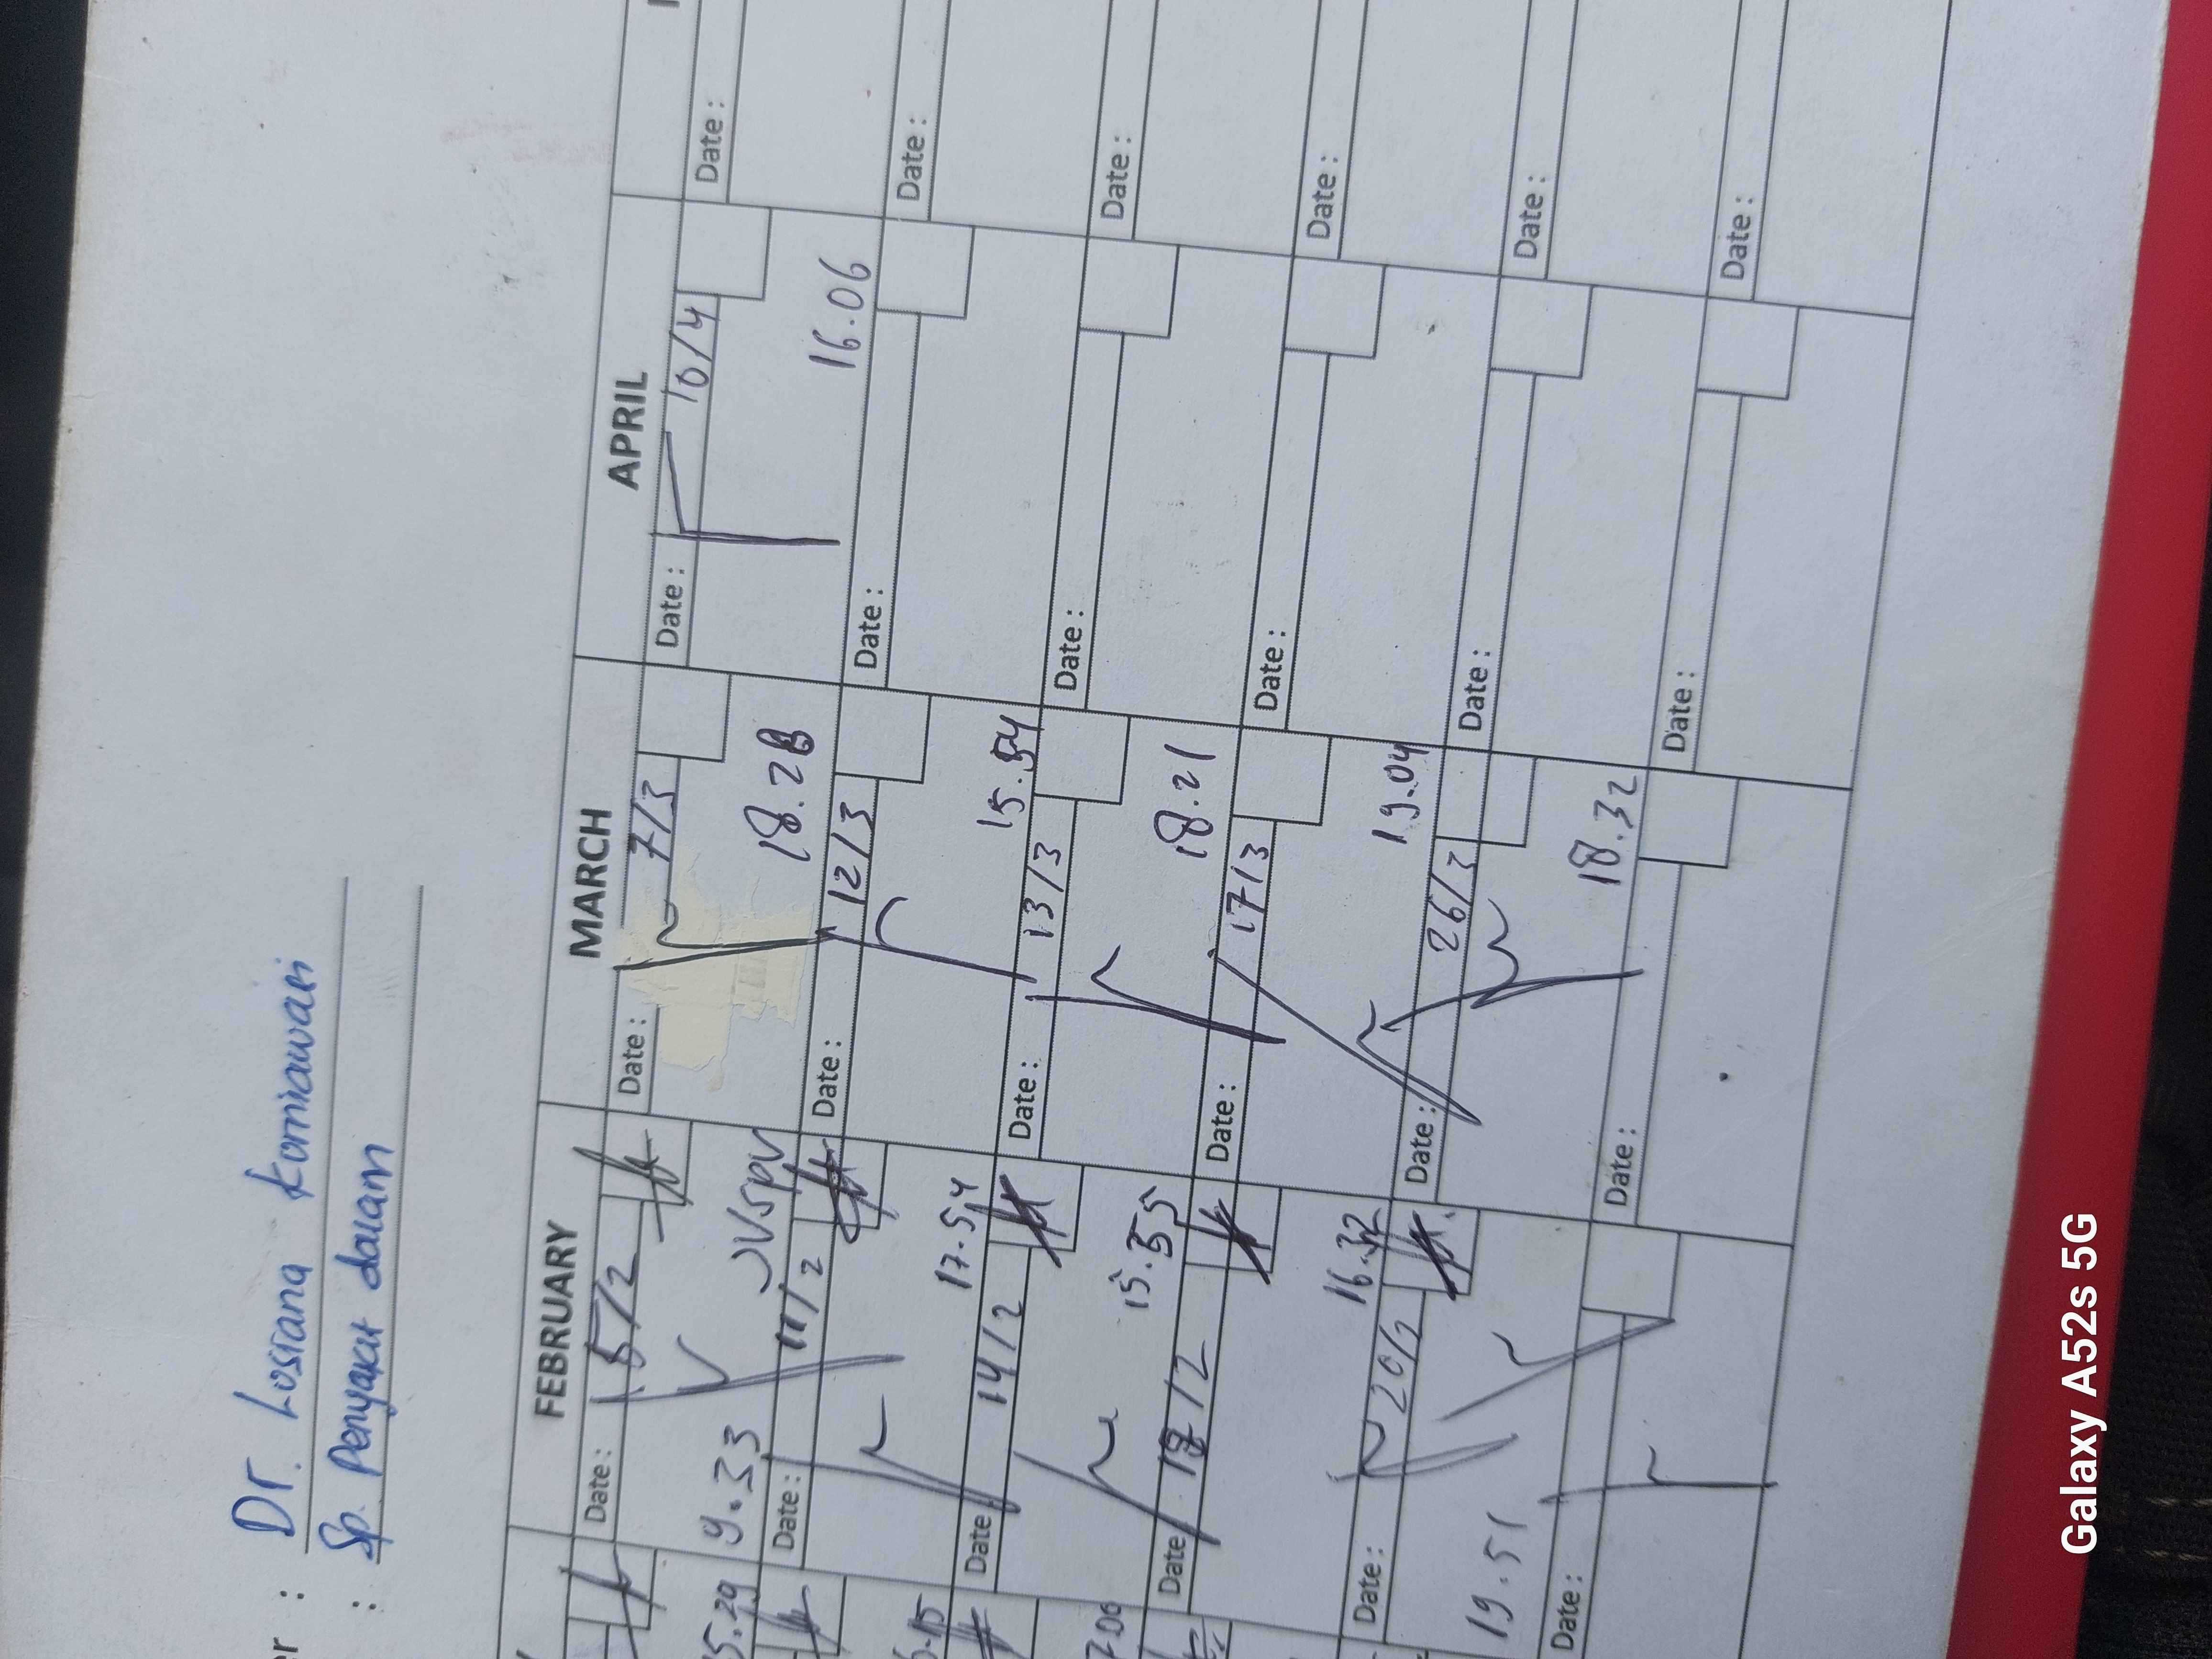 er : Dr. Losiana Korniawari
: Sp. Penyakit dalam
FEBRUARY MARCH APRIL
Date : 5/2 Date : 7/3 Date : 10/4 Date :
15.29 9.33 18.28 16.06
Date : 11/2 Date : 12/3 Date : Date :
17.54 15.54
Date 14/2 Date : 13/3 Date : Date :
15.55 18.21
Date 18/2 Date : 17/3 Date : Date :
16.32 19.04
Date : 20/2 Date : 26/3 Date : Date :
19.51 18.32
Date : Date : Date : Date :
Galaxy A52s 5G